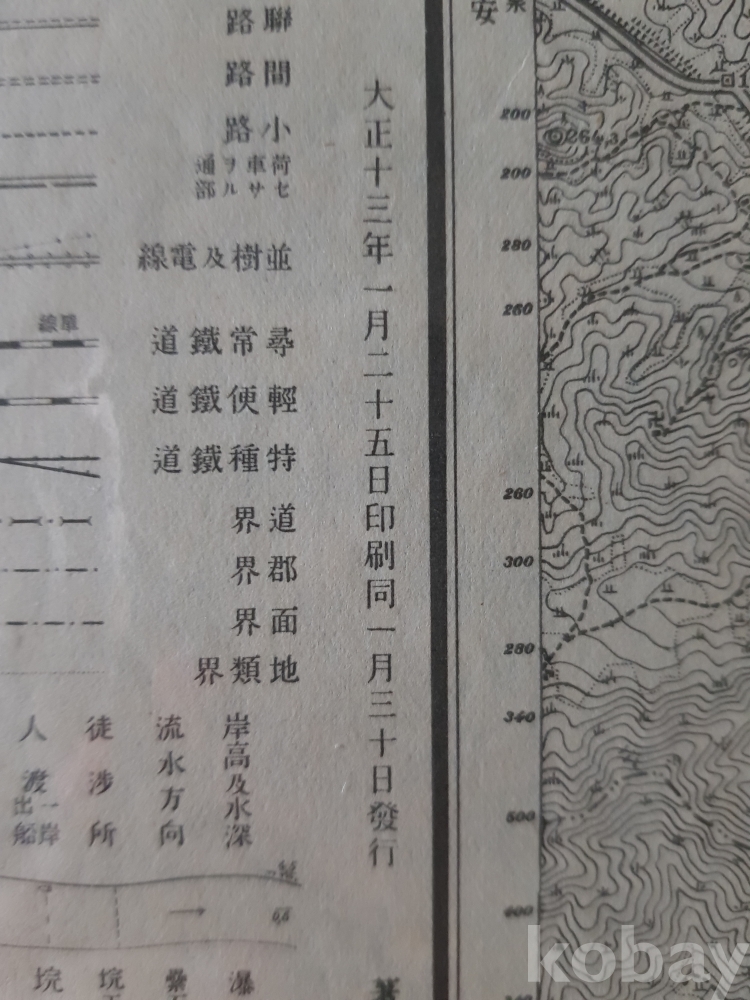 聯路
間路
小路
荷車ヲ通
セサル部
並樹及電線
單線
尋常鐵道
輕便鐵道
特種鐵道
道界
郡界
面界
地類界
岸高及水深
流水方向
徒涉所
人渡
一岸
出船
0,6
大正十三年一月二十五日印刷同一月三十日發行
安
200
264.3
200
280
260
260
300
280
340
500
600
kobay